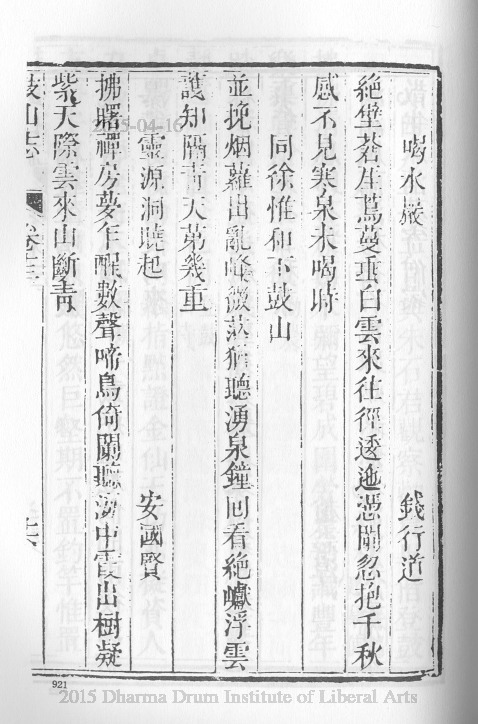 喝水巖 錢行道
絕壁蒼崖蔦蔓垂白雲來往徑逶迤憑闌忽抱千秋
感不見寒泉未喝時
同徐惟和下鼓山
並挽烟蘿出亂峰微茫猶聽湧泉鐘回看絕巘浮雲
護知隔青天第幾重
靈源洞曉起 安國賢
拂曙禪房夢乍醒數聲啼鳥倚闌聽海中霞出樹凝
紫天際雲來山斷青
鼓山志 卷十三 十六
2015-04-16
921
2015 Dharma Drum Institute of Liberal Arts